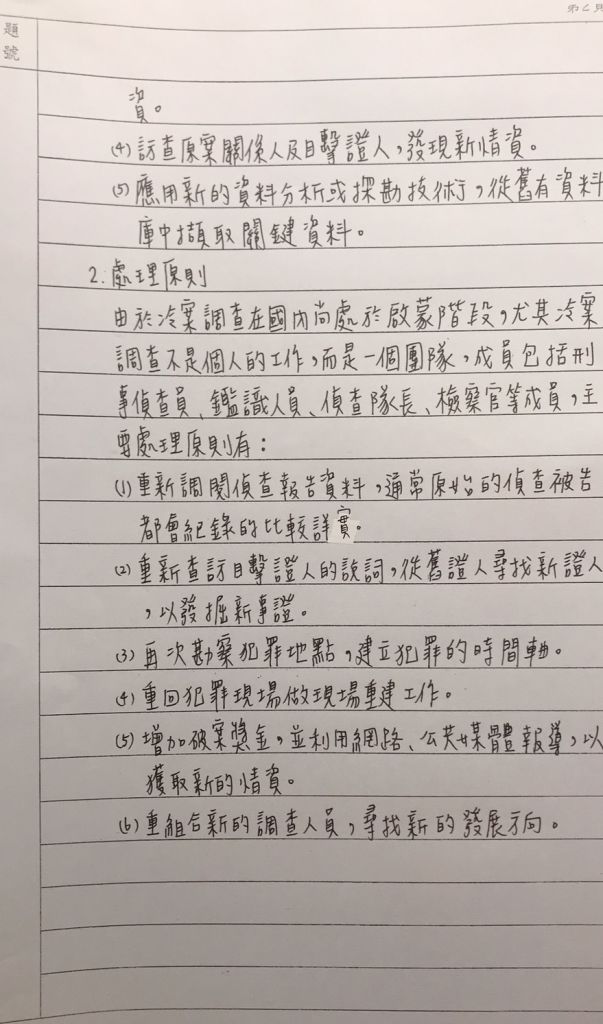 第2頁
題
號
資。
(4)訪查原案關係人及目擊證人,發現新情資。
(5)應用新的資料分析或探勘技術,從舊有資料
庫中擷取關鍵資料。
2.處理原則
由於冷案調查在國內尚處於啟蒙階段,尤其冷案
調查不是個人的工作,而是一個團隊,成員包括刑
事偵查員、鑑識人員、偵查隊長、檢察官等成員,主
要處理原則有:
(1)重新調閱偵查報告資料,通常原始的偵查被告
都會紀錄的比較詳實。
(2)重新查訪目擊證人的說詞,從舊證人尋找新證人
,以發掘新事證。
(3)再次勘察犯罪地點,建立犯罪的時間軸。
(4)重回犯罪現場做現場重建工作。
(5)增加破案獎金,並利用網路、公共媒體報導,以
獲取新的情資。
(6)重組合新的調查人員,尋找新的發展方向。